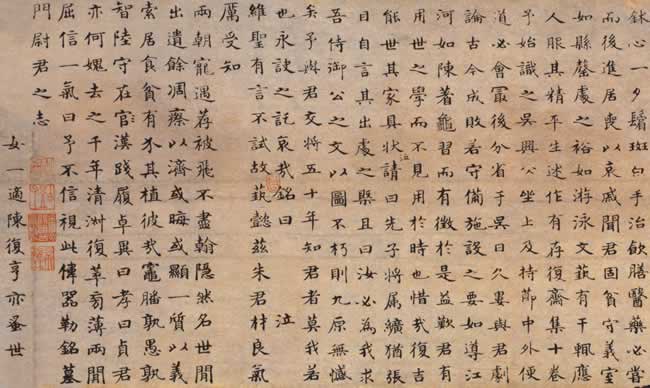 鉥心一夕鬚斑白手治飲膳醫藥必嘗
而後進居喪以哀戚聞君固貧守義室
如縣罄處之裕如游泳文藝有干輒應
人服其精平生述作有存復齋集十卷
予始識之吳興公坐上及持節中外便
道必會最後分省于吳日久與君劇
論古今成敗若守備施設之要如導江
河如陳蓍龜習而有徵於是益歎君有
用世之學而不見用於時也惜哉復吉
能世其家具狀泣請曰先子將屬纊猶張
目自言其出處之槩且曰汝必為我求
吾侍御公之文以圖不朽則九原無憾
矣予與君交將五十年知君者莫我若
也永訣之託哀哉銘曰 泣
維聖有言不試故藝懿茲朱君材良氣
厲受知
兩朝寵遇荐被飛不盡翰隱然名世閒
出遺餘凋瘵以濟或晦或顯一質以義
索居食貧有其植彼哉孰愚孰
智陸守在官漢踐履卓異曰孝曰貞君
亦何媿去之千年清復萃薄兩閒
屈信一氣曰予不信視此儁器勒銘墓
門尉君之志
女一適陳復亨亦蚤世